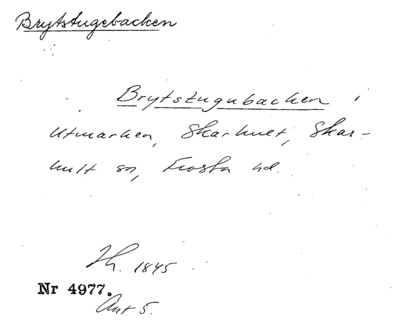 Brytstugebacken
Brytstugubacken i
Utmarken, Skarhult, Skar-
hult sn, Frosta hd.
Th. 1845
Nr 4977.
Ant 5.